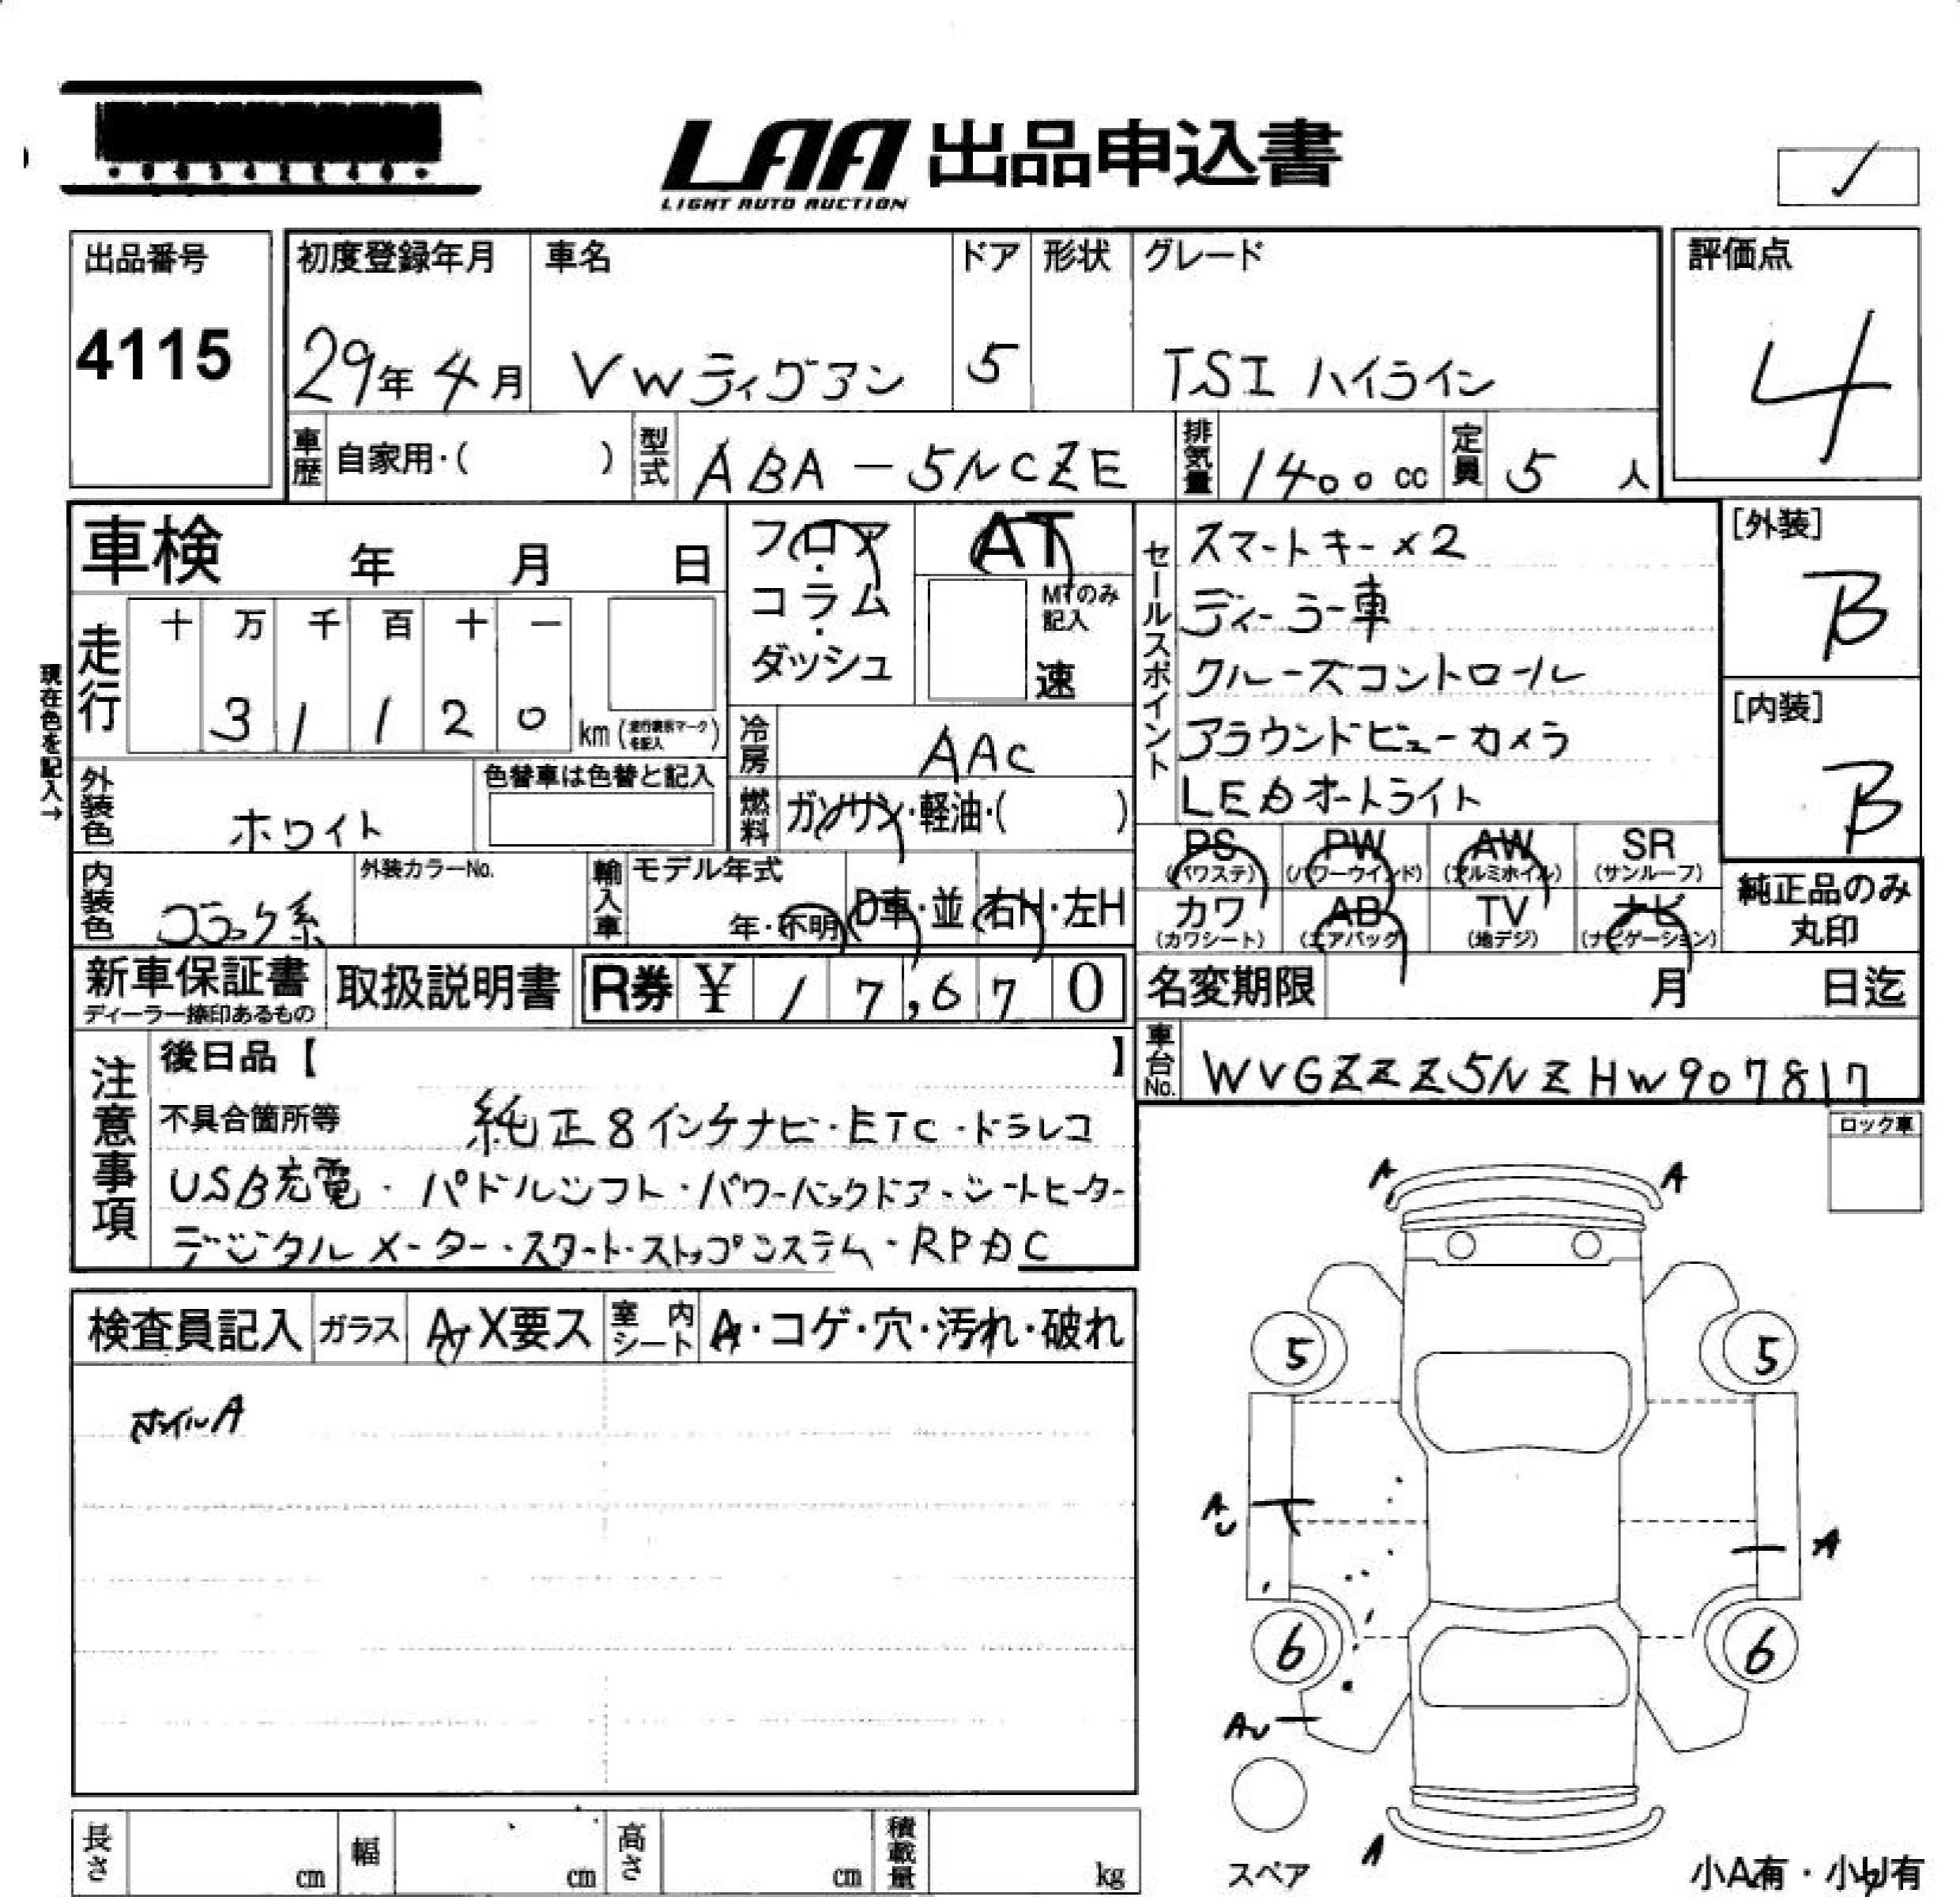 LAA 出品申込書
LIGHT AUTO AUCTION
出品番号
4115
初度登録年月 車名 ドア 形状 グレード 評価点
29年 4月 VWティグアン 5 TSI ハイライン 4
車歴 自家用・( ) 型式 ABA-5NCZE 排気量 1400cc 定員 5 人
車検 年 月 日
フロア・コラム・ダッシュ
AT
MTのみ記入
速
セールスポイント
スマートキー×2
ディーラー車
クルーズコントロール
アラウンドビューカメラ
LEDオートライト
[外装]
B
[内装]
B
現在色を記入→
走行 十 万 千 百 十 一
3 1 1 2 0 km
冷房 AAC
外装色 ホワイト 色替車は色替と記入
燃料 ガソリン・軽油・( )
PS (パワステ) PW (パワーウインド) AW (アルミホイル) SR (サンルーフ)
カワ (カワシート) AB (エアバッグ) TV (地デジ) ナビ (ナビゲーション)
純正品のみ丸印
内装色 ブラック系 外装カラーNo. 輸入車 モデル年式 年・不明 D車・並 右H・左H
新車保証書 ディーラー捺印あるもの 取扱説明書 R券 ¥ 17,670
名変期限 月 日迄
車台No. WVGZZZ5NZHW907817
注意事項
後日品【 】
不具合箇所等 純正8インチナビ・ETC・ドラレコ
USB充電・パドルシフト・パワーバックドア・シートヒーター
デジタルメーター・スタート・ストップシステム・RPDC
ロック車
検査員記入 ガラス A X要ス 室内シート A・コゲ・穴・汚れ・破れ
ホイルA
A A
5 5
AU A
6 6
AU
A
スペア
小A有・小U有
長さ cm 幅 cm 高さ cm 積載量 kg